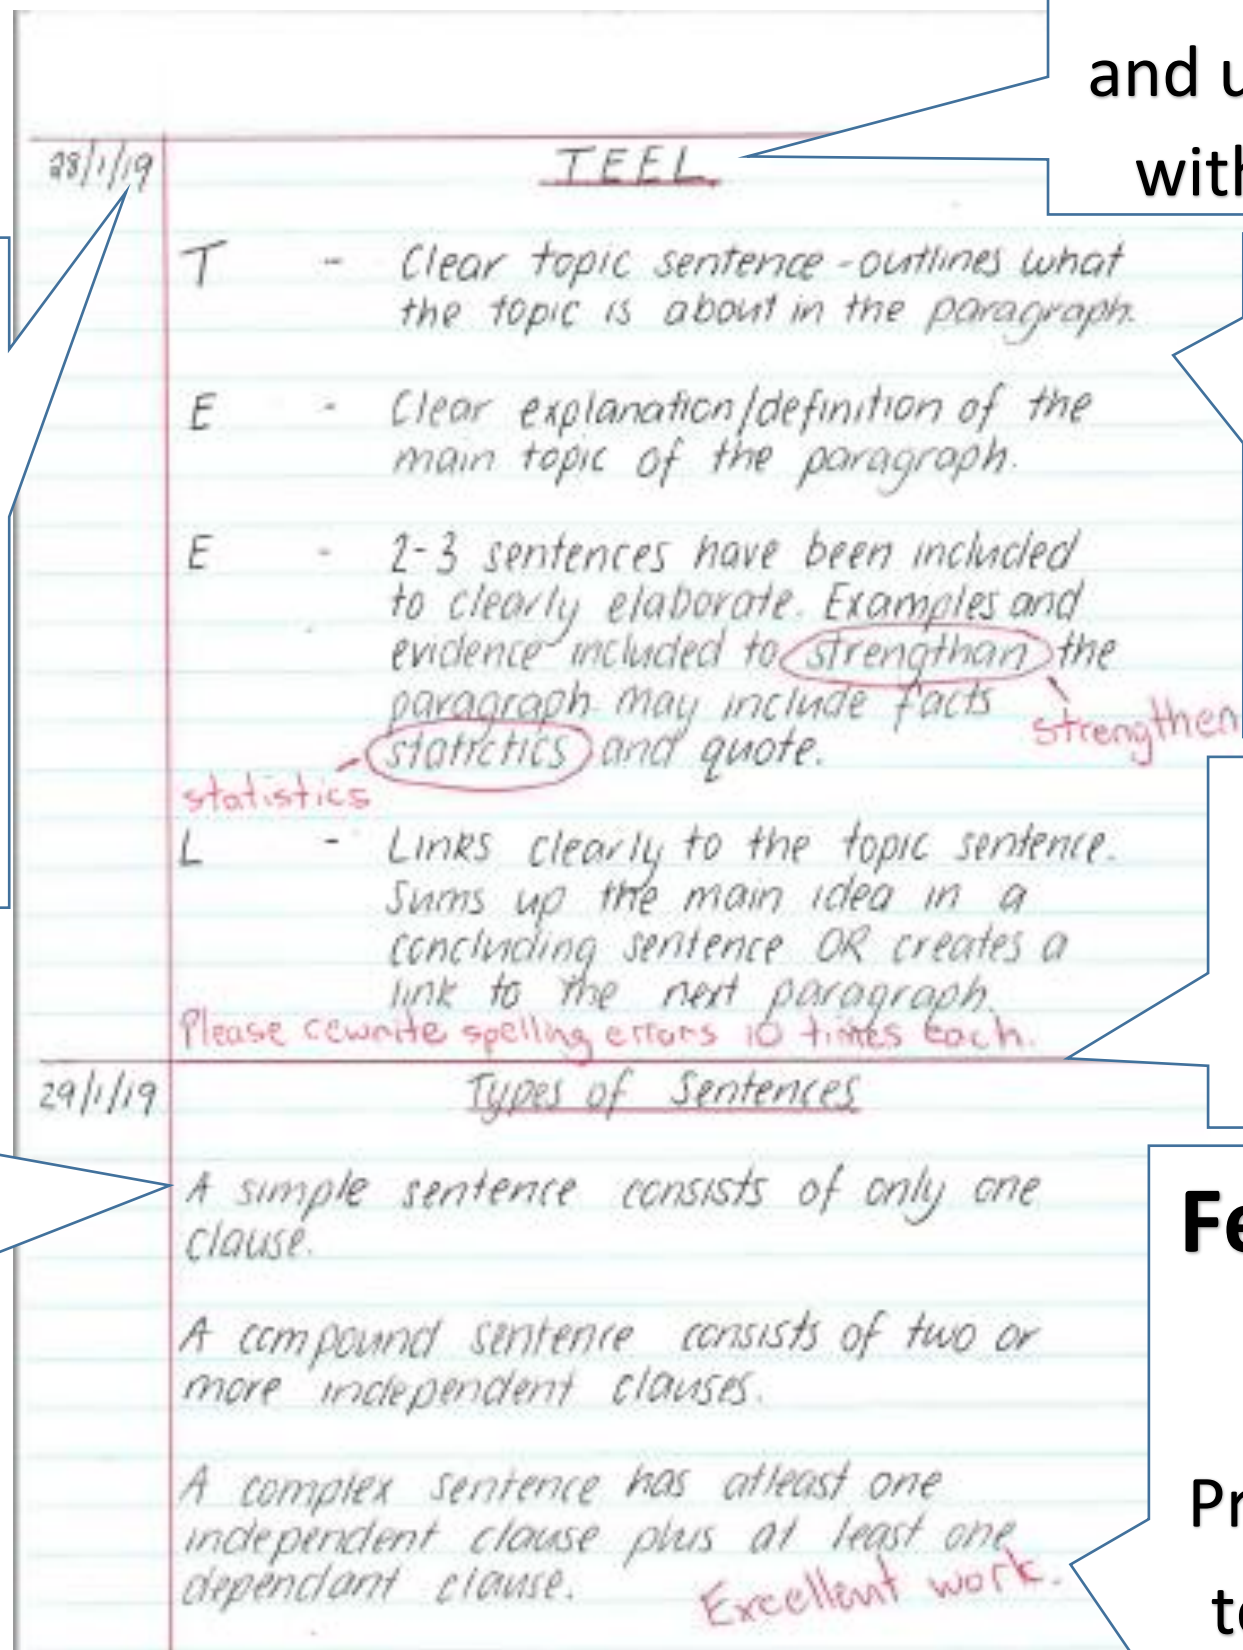 and u
with
28/1/19
TEEL
T - Clear topic sentence - outlines what
the topic is about in the paragraph.
E - Clear explanation/definition of the
main topic of the paragraph.
E - 2-3 sentences have been included
to clearly elaborate. Examples and
evidence included to strengthan the
strengthen
paragraph may include facts
statictics and quote.
statistics
L - Links clearly to the topic sentence.
Sums up the main idea in a
concluding sentence OR creates a
link to the next paragraph.
Please rewrite spelling errors 10 times each.
29/1/19
Types of Sentences
A simple sentence consists of only one
clause.
Fe
A compound sentence consists of two or
more independent clauses.
A complex sentence has atleast one
Pr
independent clause plus at least one
dependant clause.
Excellent work.
te